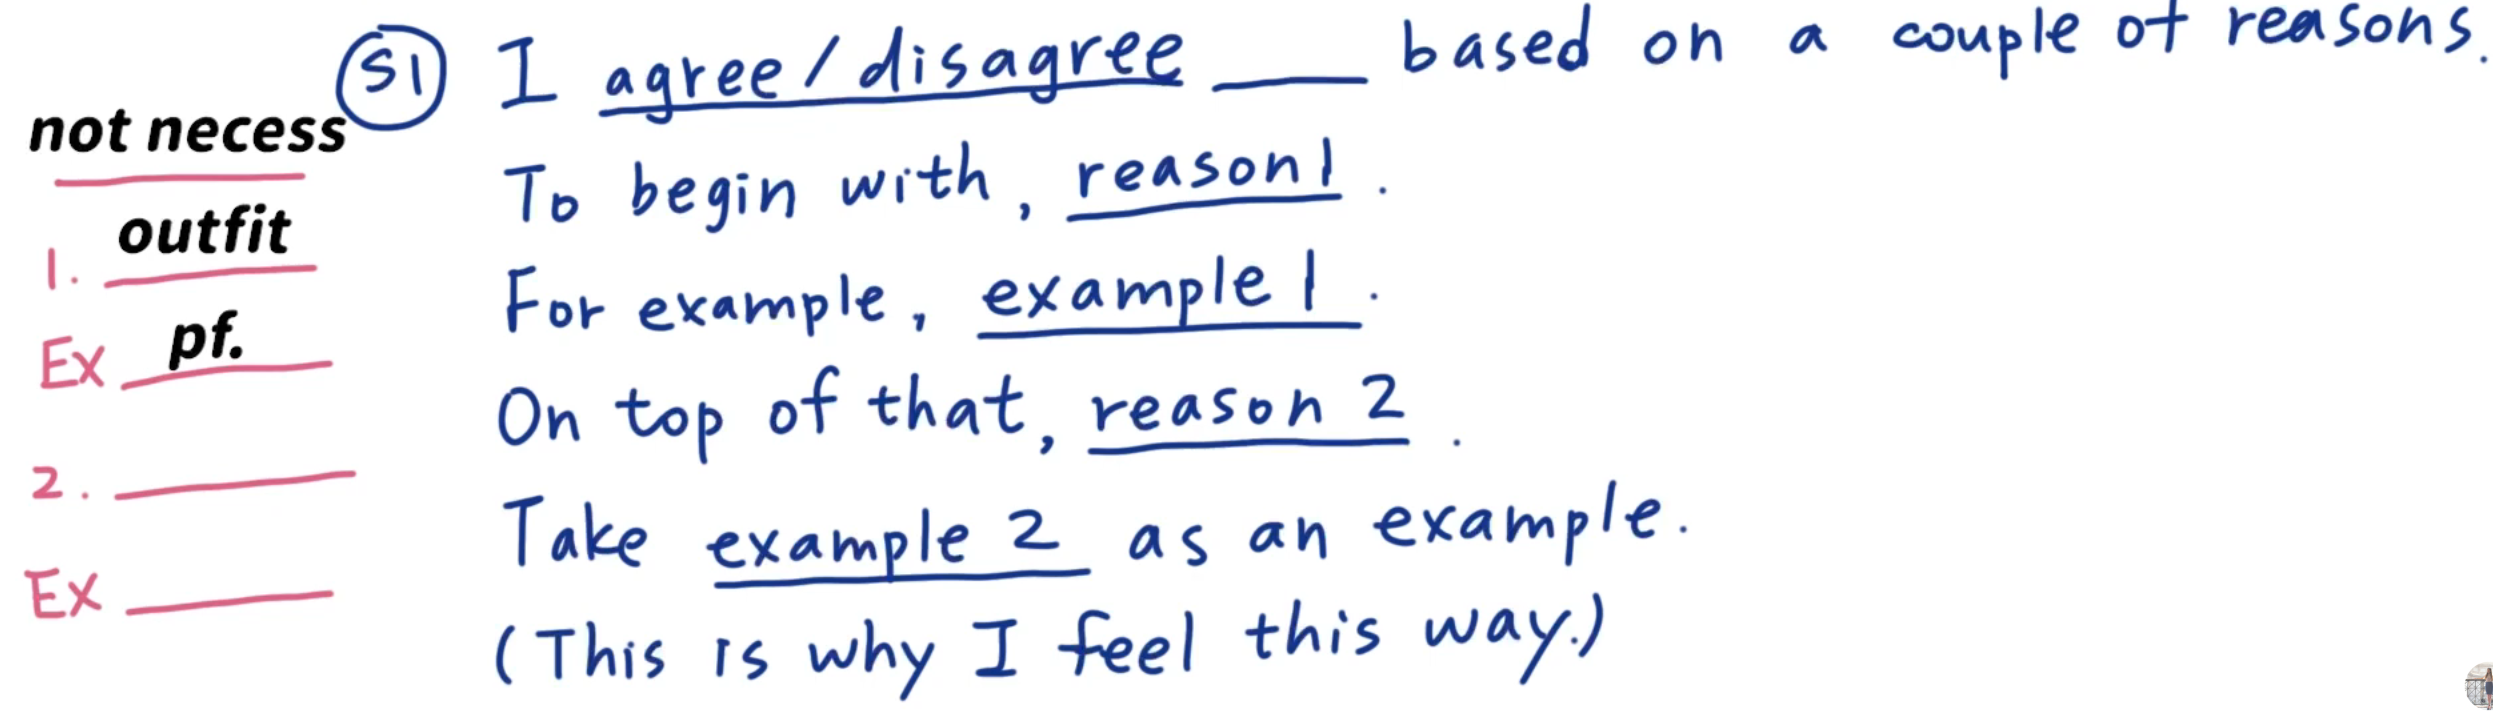 not necess
1. outfit
Ex pf.
2.
Ex
S1 I agree/disagree ____ based on a couple of reasons.
To begin with, reason 1.
For example, example 1.
On top of that, reason 2.
Take example 2 as an example.
(This is why I feel this way.)